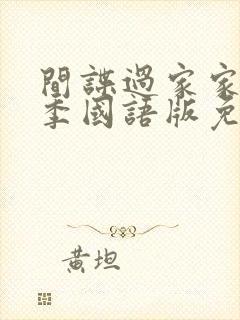 間諜過家家
季國語版免
黃坦